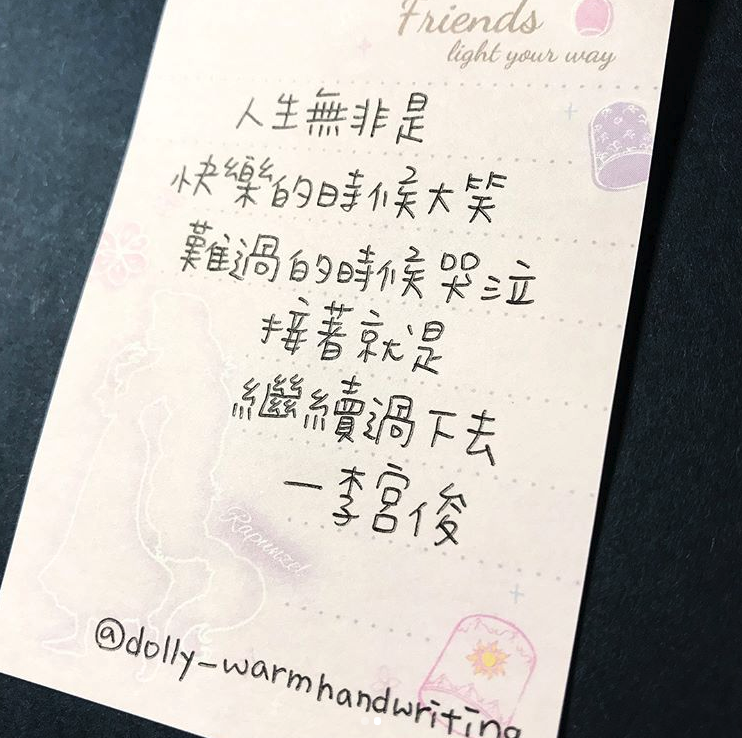 Friends
light your way
人生無非是
快樂的時候大笑
難過的時候哭泣
接著就是
繼續過下去
—李宮俊
Rapunzel
@dolly_warmhandwriting